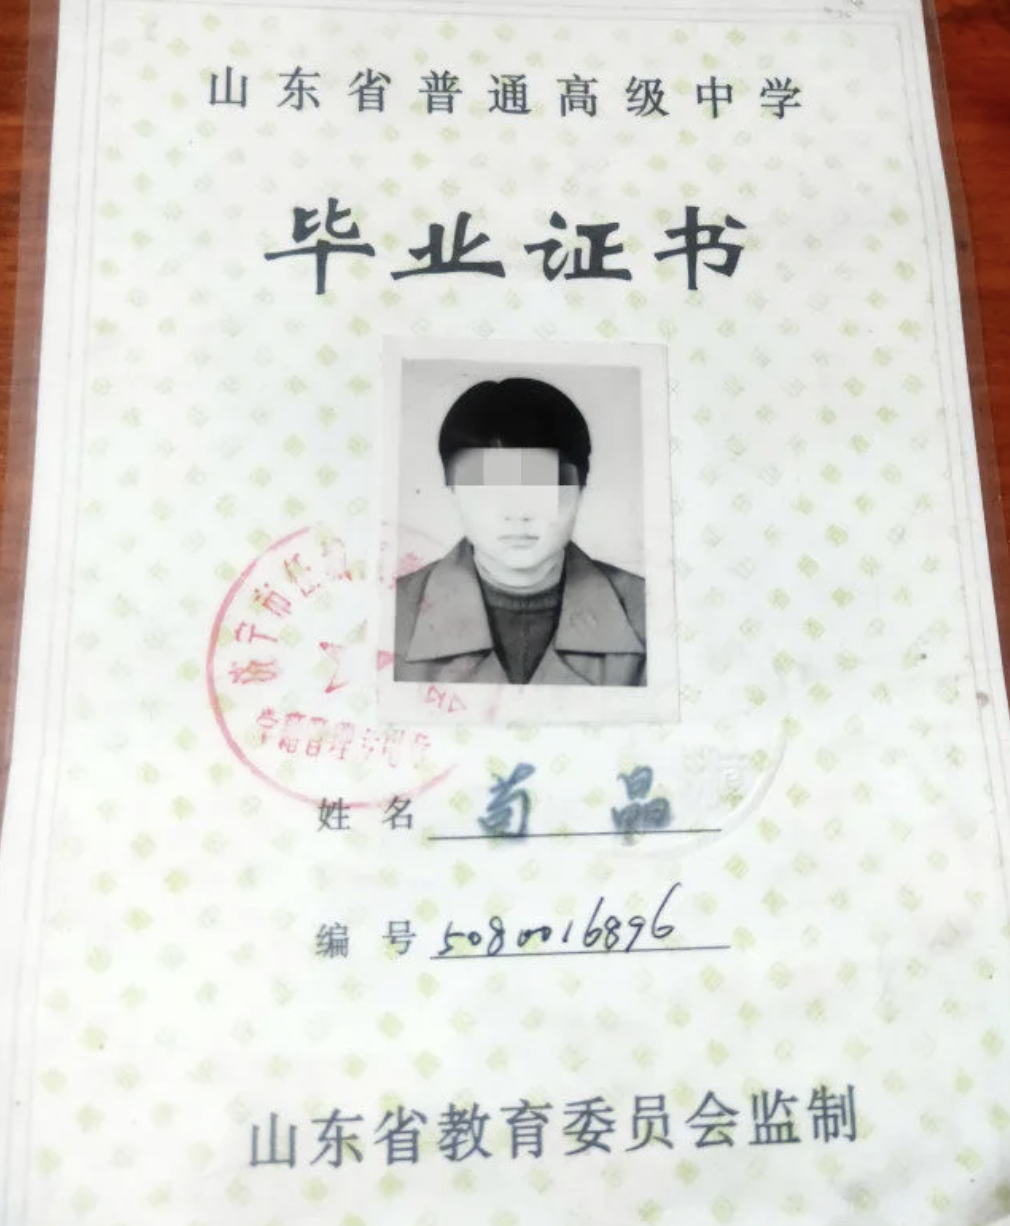 山东省普通高级中学
毕业证书
学籍管理专用章
姓名 苟晶
编号 5080016896
山东省教育委员会监制